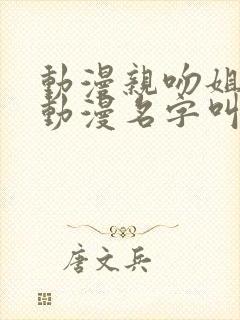 動漫親吻姐
動漫名字叫
唐文兵